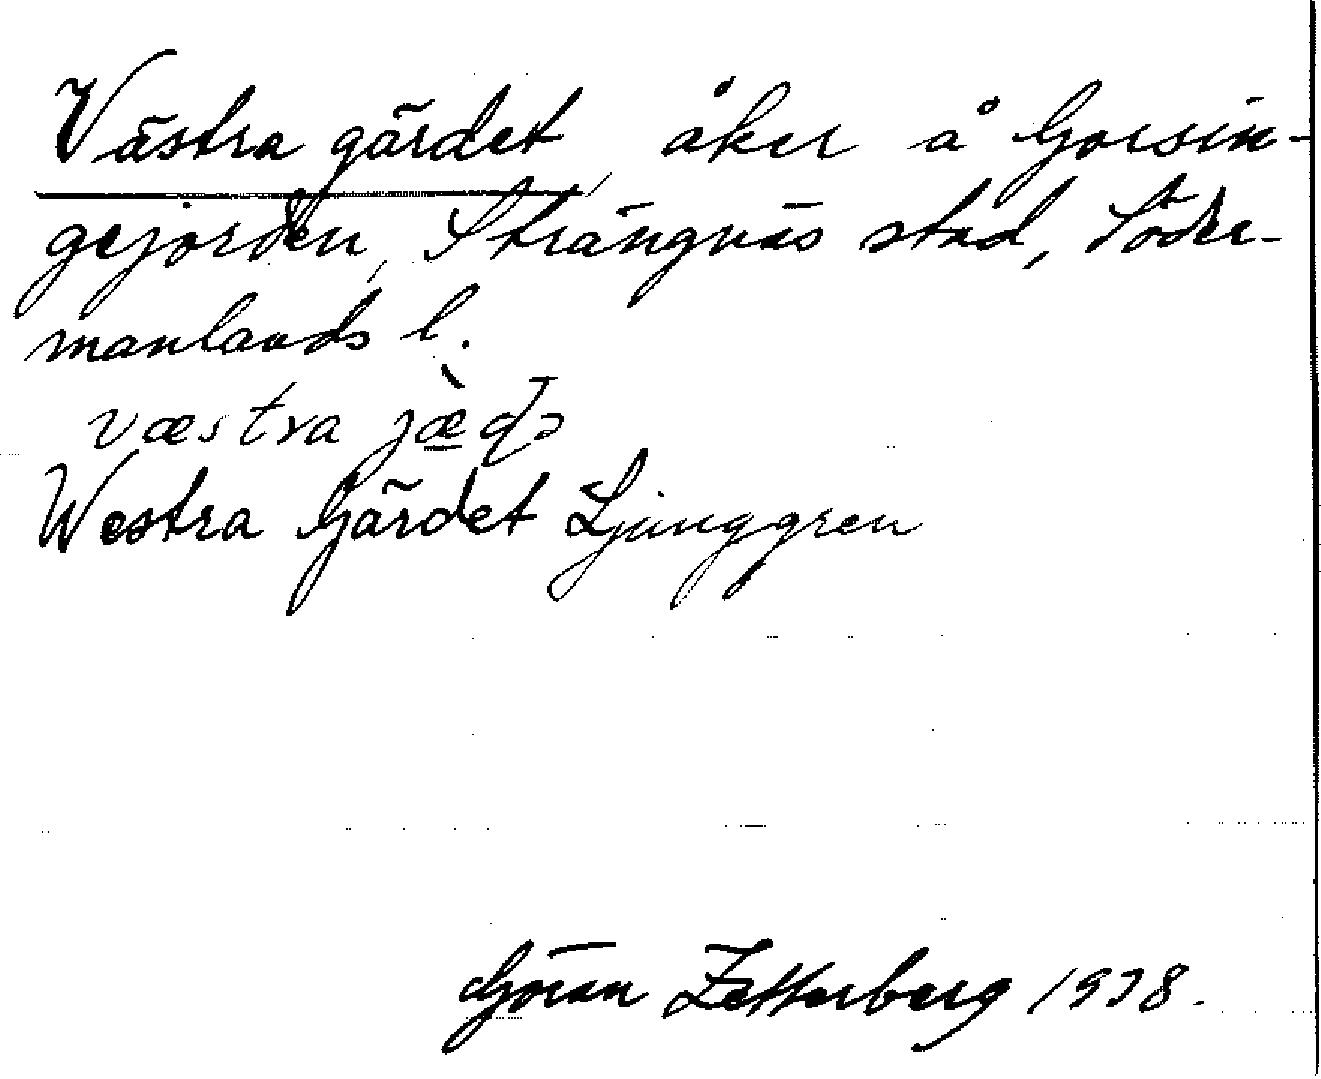 Västra gärdet, åker å Gorsin-
gejorden, Strängnäs stad, Söder-
manlands l.
væstra
Westra Gärdet Ljunggren
Göran Zetterberg 1938.